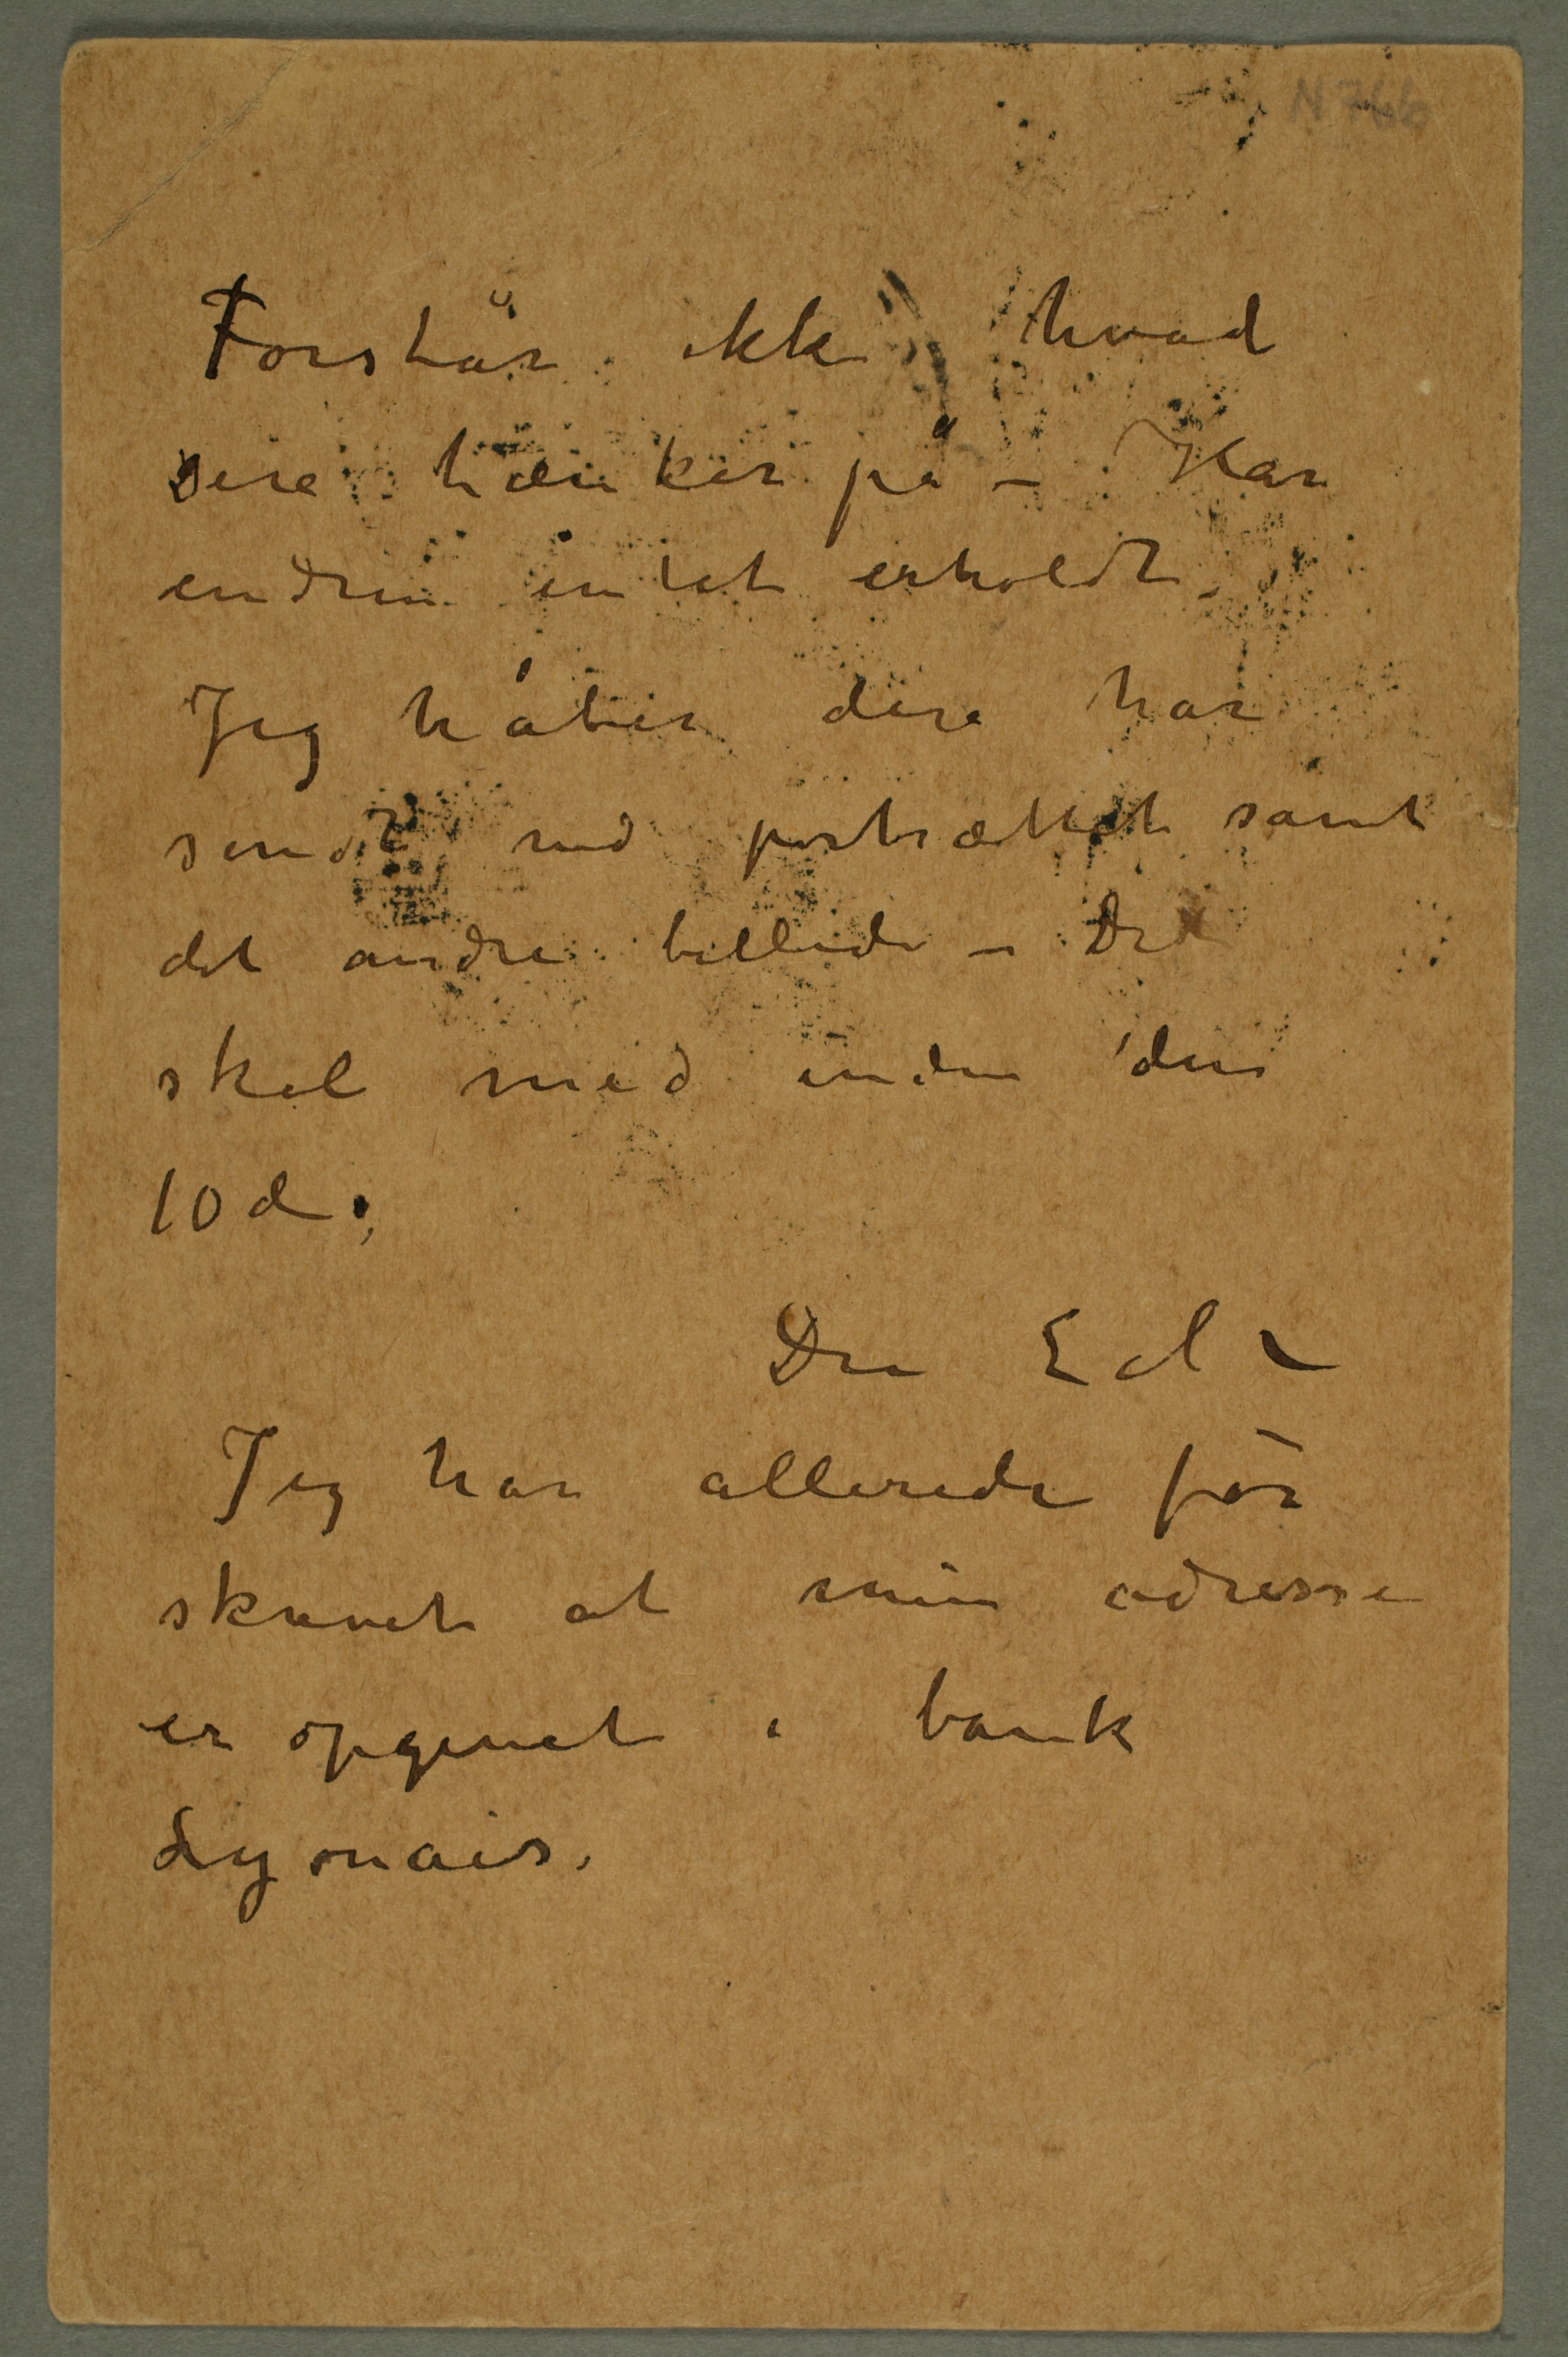 N 766
Forstår ikke hvad
dere tænker på – Har
endnu intet erholdt.
Jeg håber dere har
sendt ned portrættet samt
det andre billede – Det
skal med inden den
10de.
Din Edv
Jeg har allerede før
skrevet at min adresse
er opgivet i bank
Lyonais.